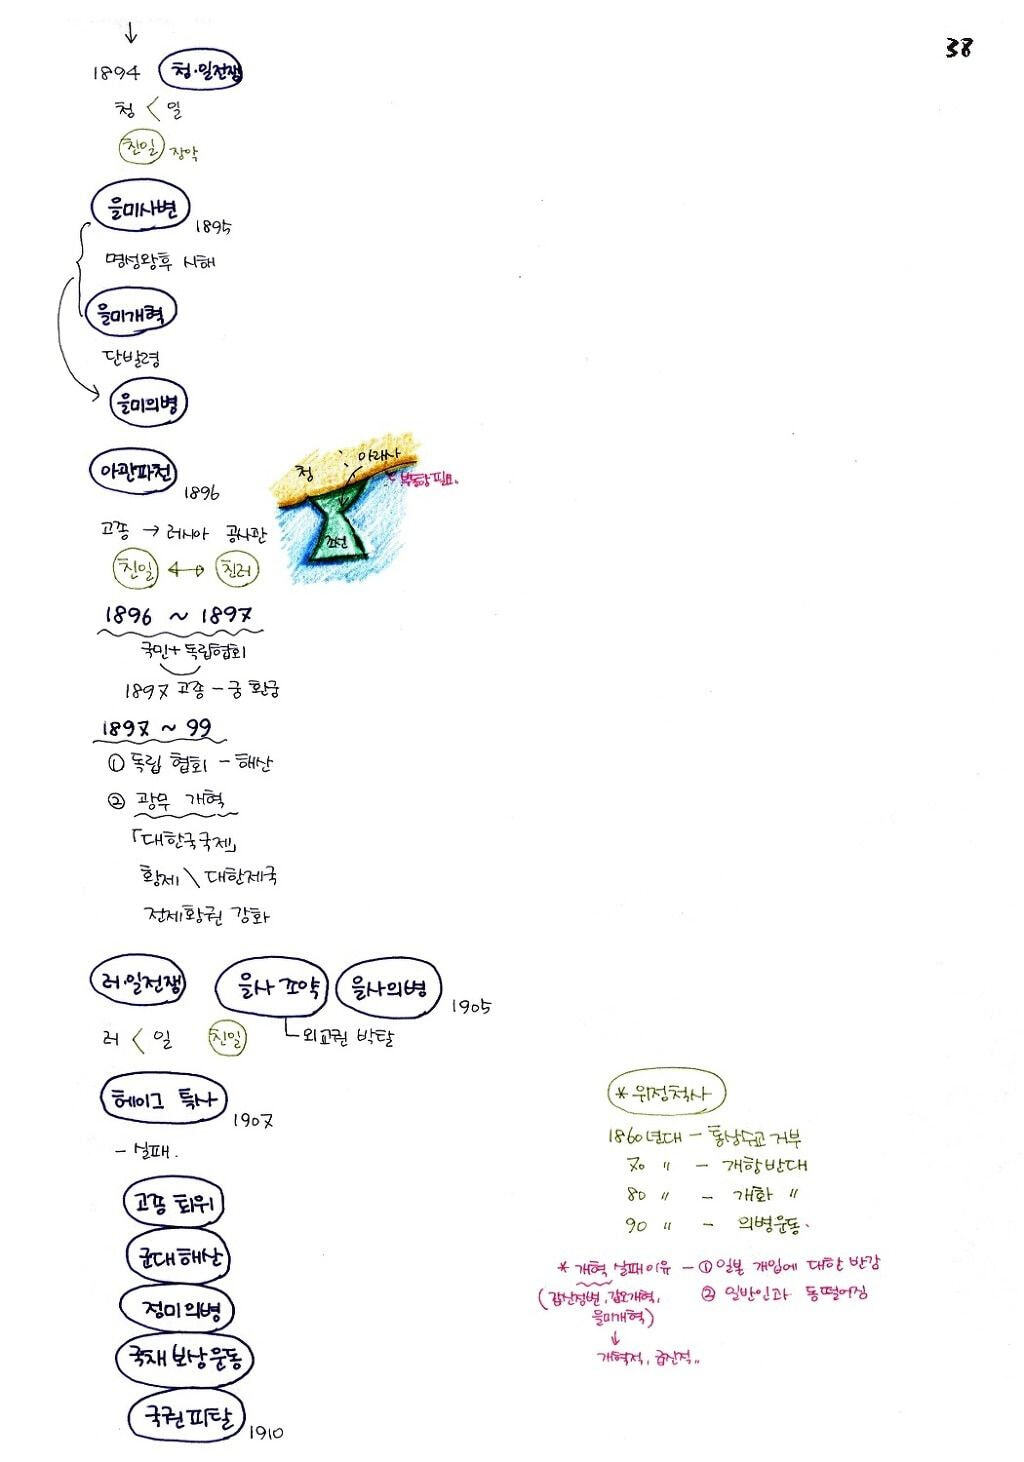 38
1894 청·일전쟁
청 < 일
친일 장악
을미사변 1895
명성왕후 시해
을미개혁
단발령
을미의병
아관파천 1896
청 아라사
부동항 필요.
조선
고종 → 러시아 공사관
친일 ↔ 친러
1896 ~ 1897
국민+독립협회
1897 고종 - 궁 환궁
1897 ~ 99
① 독립 협회 - 해산
② 광무 개혁
「대한국국제」
황제 \ 대한제국
전제황권 강화
러·일전쟁 을사조약 을사의병 1905
러 < 일 친일 외교권 박탈
헤이그 특사 1907
- 실패.
고종 퇴위
군대해산
정미의병
국채보상운동
국권피탈 1910
* 위정척사
1860년대 - 통상수교 거부
70 〃 - 개항반대
80 〃 - 개화 〃
90 〃 - 의병운동.
* 개혁 실패이유 - ① 일본 개입에 대한 반감
(갑신정변, 갑오개혁, ② 일반인과 동떨어짐
을미개혁)
↓
개혁적, 급진적..